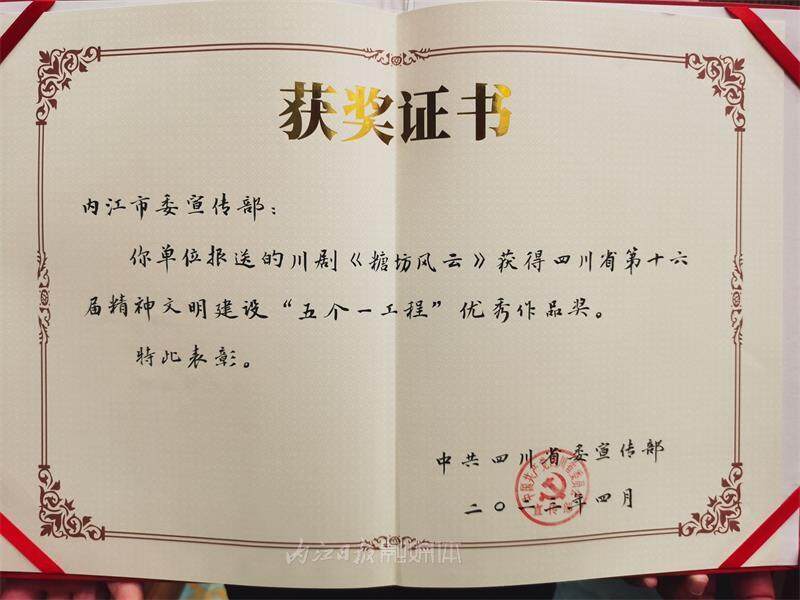 获奖证书
内江市委宣传部：
你单位报送的川剧《糖坊风云》获得四川省第十六
届精神文明建设“五个一工程”优秀作品奖。
特此表彰。
中共四川省委宣传部
二〇二二年四月
内江日报融媒体